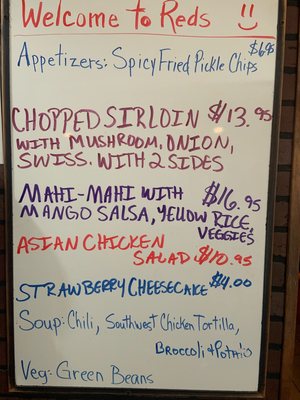 Welcome to Reds
Appetizers: Spicy Fried Pickle Chips $6.95
CHOPPED SIRLOIN $13.95
WITH MUSHROOM, ONION,
SWISS. WITH 2 SIDES
MAHI-MAHI WITH $16.95
MANGO SALSA, YELLOW RICE,
VEGGIES
ASIAN CHICKEN
SALAD $10.95
STRAWBERRY CHEESECAKE $4.00
Soup: Chili, Southwest Chicken Tortilla,
Broccoli & Potato
Veg: Green Beans